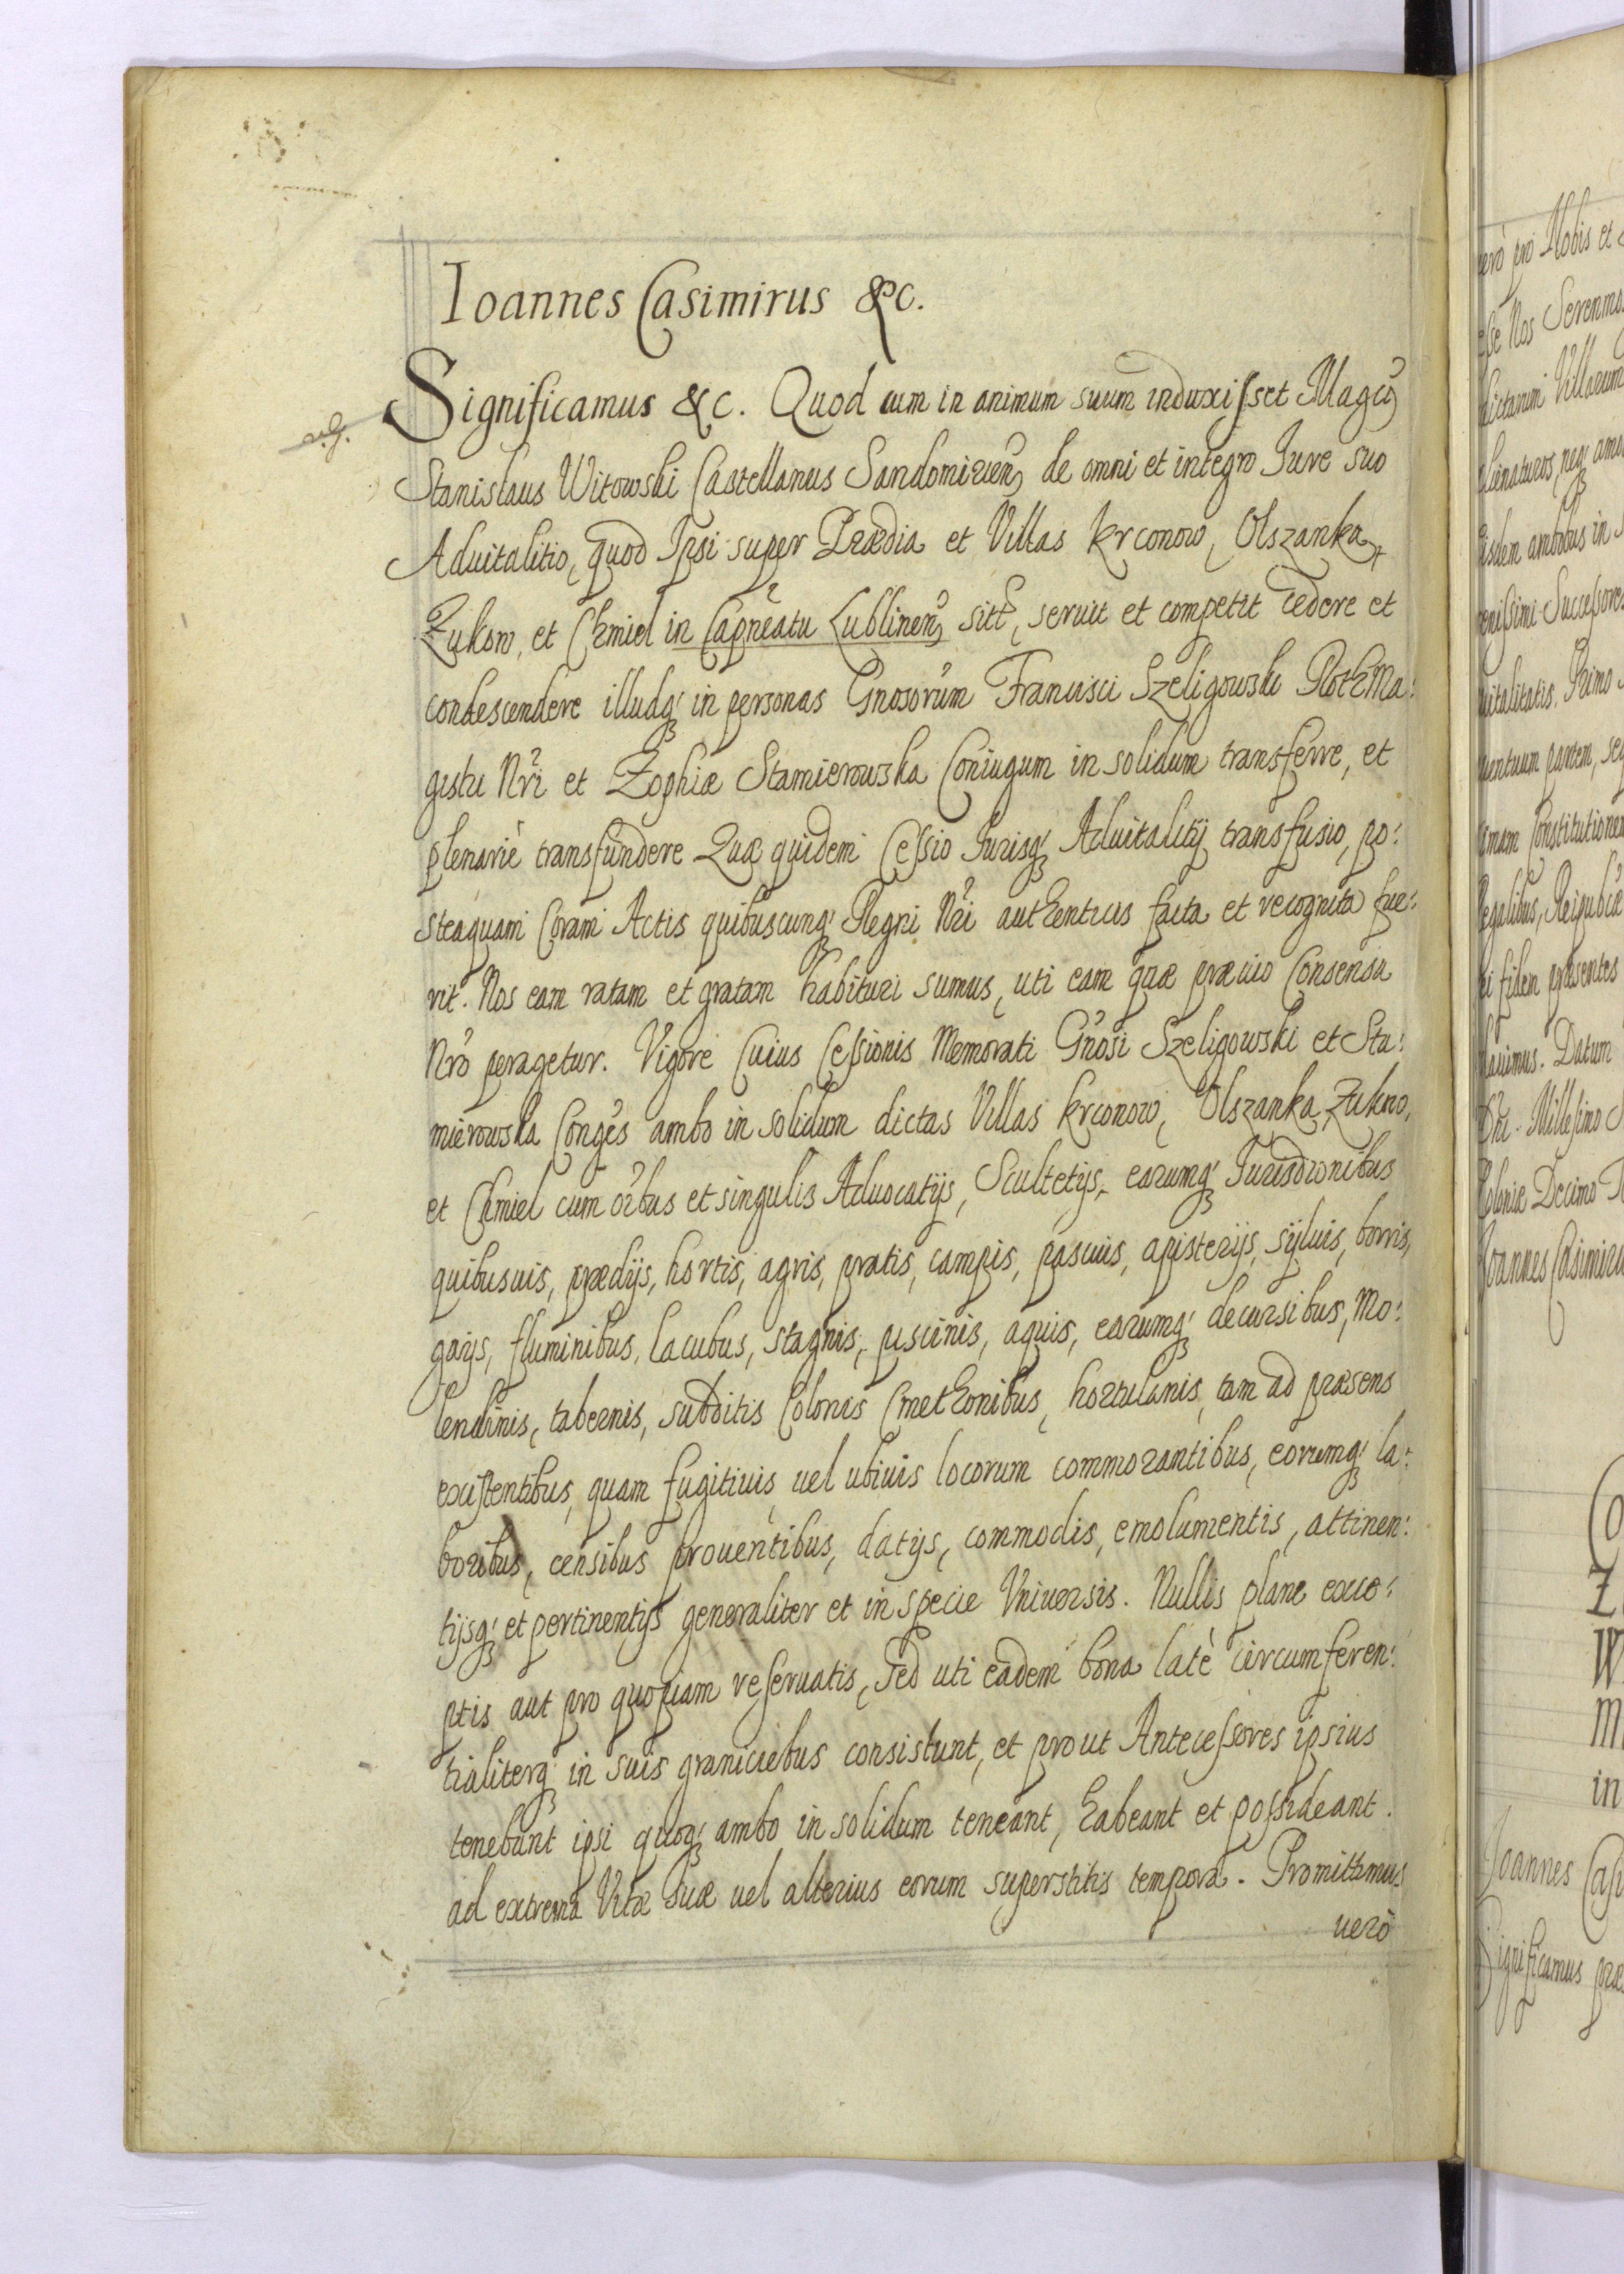 Ioannes Casimirus &c.
Significamus &c. Quod cum in animum suum induxisset Magcus
Stanislaus Witowski Castellanus Sandomirien, de omni et integro Iure suo
Aduitalitio, quod Ipsi super Prædia et Villas Krconow, Olszanka
Zukow, et Chmiel in Capneatu Lublinen, sitt, seruit et competit cedere et
condescendere illudq' in personas Gnosorum Francisci Szeligowski RothMa:
gistri Nri et Zophiæ Stamierowska Coniugum in solidum transferre, et
plenariè transfundere Quæ quidem Cessio Iurisq' Aduitalitij transfusio, po:
steaquam Coram Actis quibuscunq' Regni Nri authenticis facta et recognita fue:
rit. Nos eam ratam et gratam habituri sumus, uti eam quæ præuio Consensu
Nro peragetur. Vigore Cuius Cessionis Memorati Gnosi Szeligowski et Sta:
mierowska Conges ambo in solidum dictas Villas Krconow, Olszanka, Zukow,
et Chmiel cum oibus et singulis Aduocatijs, Scultetijs, earumq' Iurisdionibus
quibusuis, prædijs, hortis, agris, pratis, campis, pascuis, apisterijs, syluis, borris,
gaijs, fluminibus, lacubus, stagnis, piscinis, aquis, earumq' decursibus, Mo:
lendinis, tabernis, subditis Colonis Cmethonibus, hortulanis, tam ad præsens
existentibus, quam fugitiuis, uel ubiuis locorum commorantibus, eorumq' la:
boribus, censibus prouentibus, datijs, commodis, emolumentis, attinen:
tijsq' et pertinentijs generaliter et in specie Vniuersis. Nullis plane exce:
ptis aut pro quopiam reseruatis, Sed uti eadem bona latè circumferen:
tialiterq' in suis graniciebus consistunt, et prout Antecessores ipsius
tenebant ipsi quoq' ambo in solidum teneant, habeant et possideant.
ad extrema Vitæ suæ uel alterius eorum superstitis tempora. Promittimus
uerò